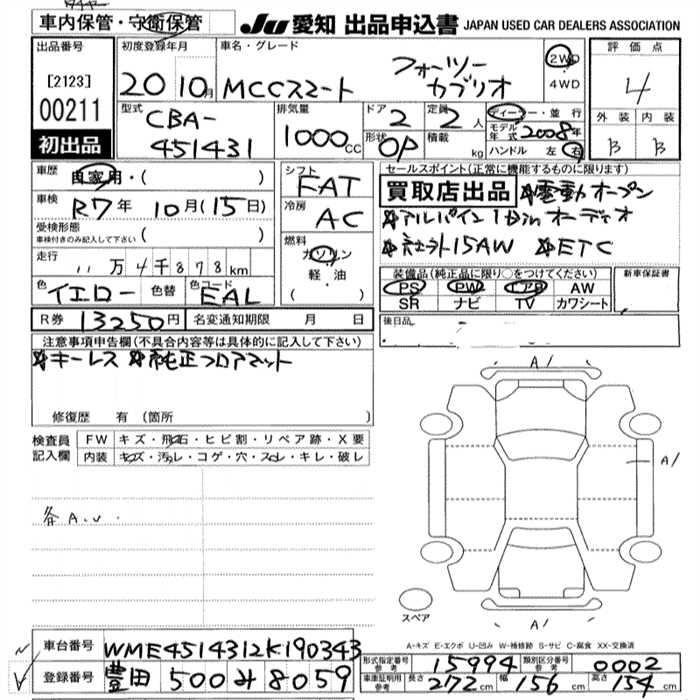 車内保管・守衛保管
JU 愛知 出品申込書 JAPAN USED CAR DEALERS ASSOCIATION
出品番号
[2123]
00211
初出品
初度登録年月
20 10月
車名・グレード
MCCスマート フォーツー カブリオ
2WD
4WD
評価点
4
外装 内装
B B
型式
CBA-
451431
排気量
1000cc
ドア 2
定員 2人
形状 OP
積載 kg
ディーラー・並行
モデル年式 2008年
ハンドル 左 右
車歴 自家用・( )
車検 R7年 10月(15日)
受検形態
車検付きのみ記入して下さい ( )
走行 11万4千878km
色 イエロー 色替 色コード EAL
R券 13250円 名変通知期限 月 日
シフト
FAT
冷房
AC
燃料
ガソリン
軽・油
・( )
セールスポイント(正常に機能するものに限ります)
買取店出品 ※電動オープン
※アルパイン1Dinオーディオ
※社外15AW ※ETC
装備品(純正品に限り○をつけてください)
PS PW エアB AW
SR ナビ TV カワシート
新車保証書
後日品
注意事項申告欄(不具合内容等は具体的に記入して下さい)
※キーレス ※純正フロアマット
修復歴 有 (箇所 )
検査員記入欄
FW キズ・飛石・ヒビ割・リペア跡・X要
内装 キズ・汚レ・コゲ・穴・スレ・キレ・破レ
各A.U.
A1
A1
A1
スペア
A-キズ E-エクボ U-凹み W-補修跡 S-サビ C-腐食 XX-交換済
車台番号 WME4514312K190343
登録番号 豊田 500 み 8059
形式指定番号 参考 15994 類別区分番号 参考 0002
車庫証明用 参考 長さ 272cm 幅 156cm 高さ 154cm